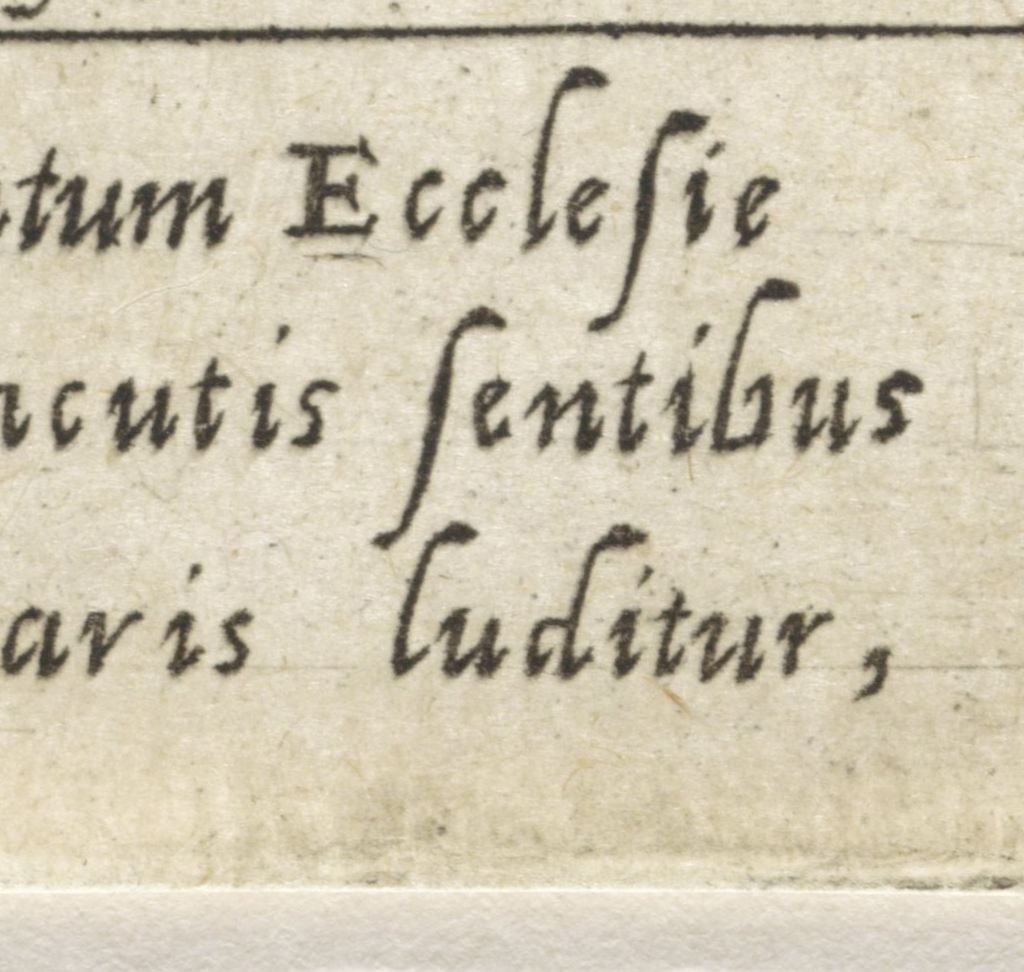 tum Eccleſie
cutis ſentibus
aris luditur,